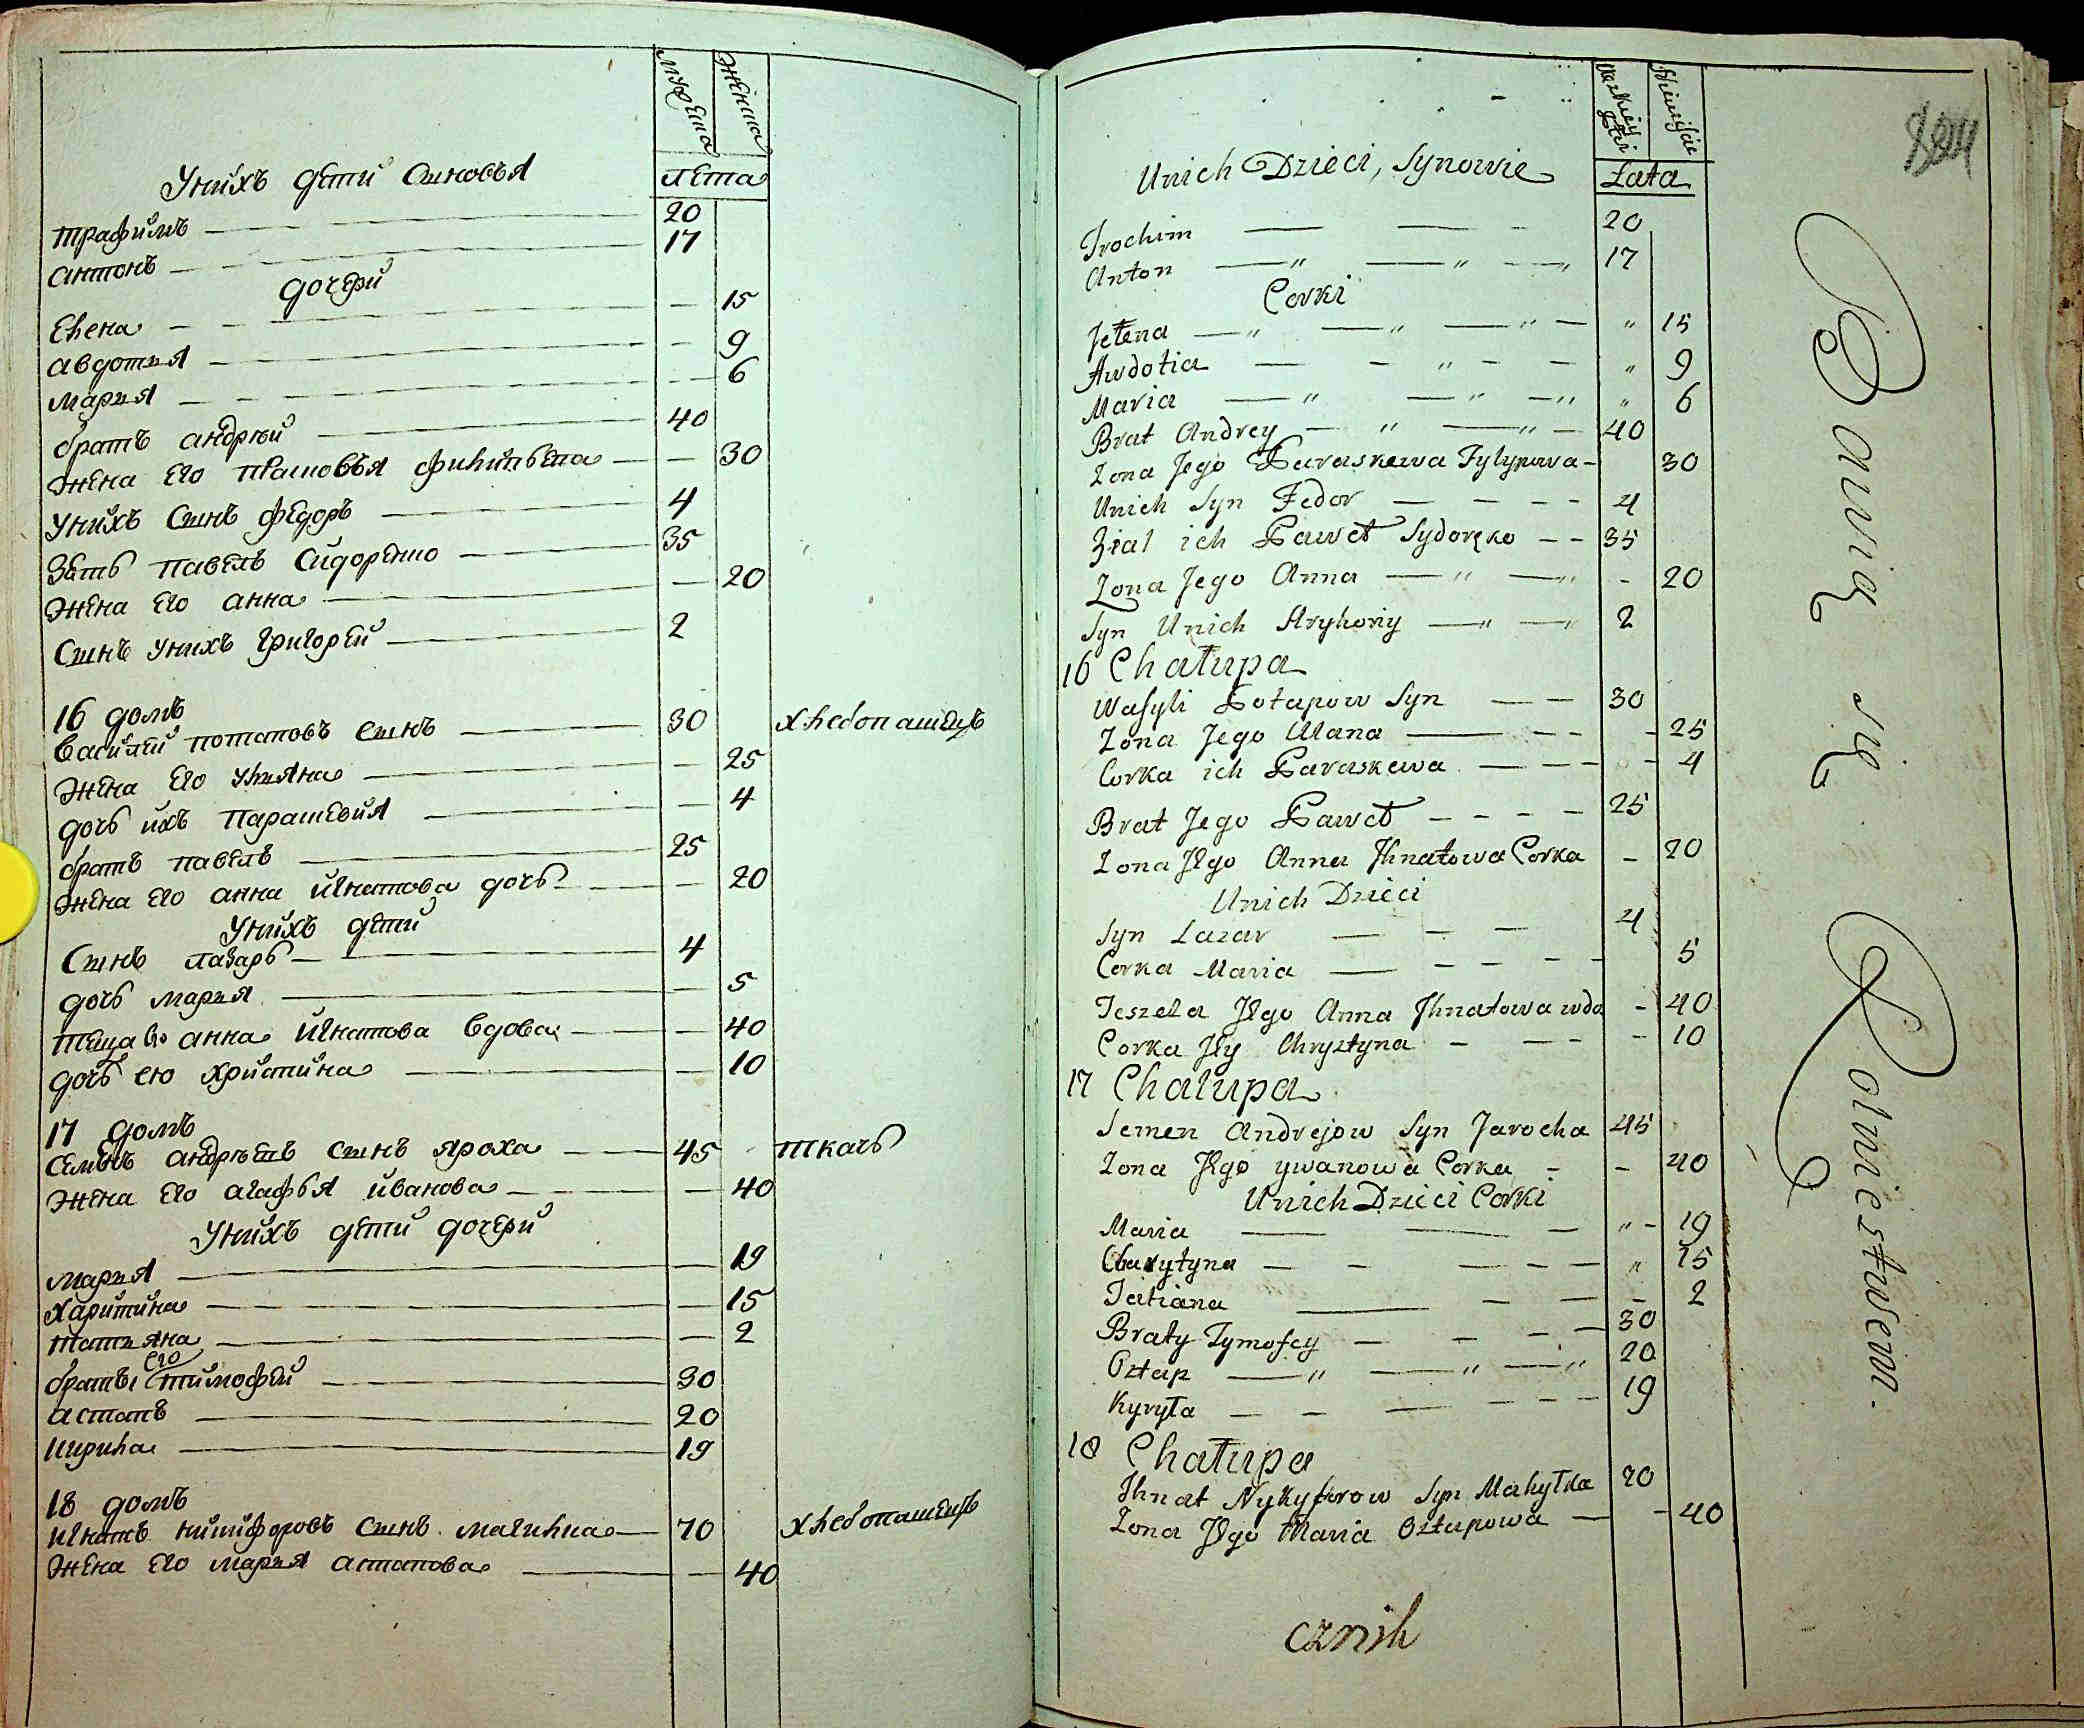 мужеска женска
лета
Унихъ дети синовья
трафимъ 20
антонъ 17
дочери
Елена 15
авдотья 9
марья 6
братъ андрей 40
жена Его прасковья филипьева 30
Унихъ Синъ федоръ 4
Зять павелъ Сидоренко 35
жена Его анна 20
Синъ унихъ григорей 2
16 домъ
василей потаповъ Синъ 30 хлебопашецъ
жена Его ульяна 25
дочь ихъ парашевия 4
братъ павелъ 25
жена Его анна игнатова дочь 20
Унихъ дети
Синъ лазарь 4
дочь марья 5
теща Его анна игнатова вдова 40
дочь ею христина 10
17 домъ
Семенъ андреевъ синъ яроха 45 ткачь
жена Его агафья иванова 40
Унихъ дети дочери
марья 19
харитина 15
татьяна 2
братьи Его тимофей 30
астапъ 20
кирила 19
18 домъ
игнатъ никифоровъ Синъ магилка 70 хлебопашецъ
жена Его марья астапова 40
Lata
Unich Dzieci, Synowie
Trochim 20
Anton 17
Corki
Jełena " 15
Awdotia " 9
Maria " 6
Brat Andrey 40
Zona Jego Paraskewa Fylypowa 30
Unich Syn Fedor 4
Ziat ich Paweł Sydoręko 35
Zona Jego Anna 20
Syn Unich Hryhoriy 2
16 Chałupa
Wasyli Potapow Syn 30
Zona Jego Ulana 25
Corka ich Paraskewa 4
Brat Jego Paweł 25
Zona Jego Anna Jhnatowa Corka 20
Unich Dzieci
Syn Lazar 4
Corka Maria 5
Teszcza Jego Anna Jhnatowa wdo 40
Corka Jey Chrystyna 10
17 Chalupa
Semen Andrejow Syn Jarocha 45
Zona Jego ywanowa Corka 40
Unich Dzieci Corki
Maria " 19
Charytyna " 15
Tatiana 2
Braty Tymofey 30
Ostap 20
Kyryła 19
18 Chałupa
Jhnat Nykyforow Syn Mahyłka 70
Zona Jego Maria Ostapowa 40
Bawią się Rolnictwem.